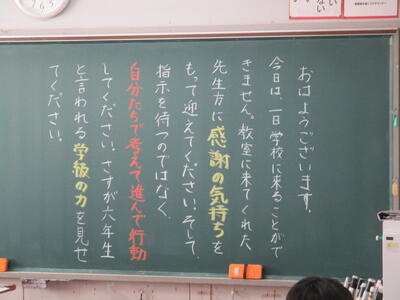 おはようございます。
今日は、一日学校に来ることがで
きません。教室に来てくれた、
先生方に感謝の気持ちを
もって迎えてください。そして、
指示を待つのではなく、
自分たちで考えて進んで行動
してください。さすが六年生
と言われる学級の力を見せ
てください。